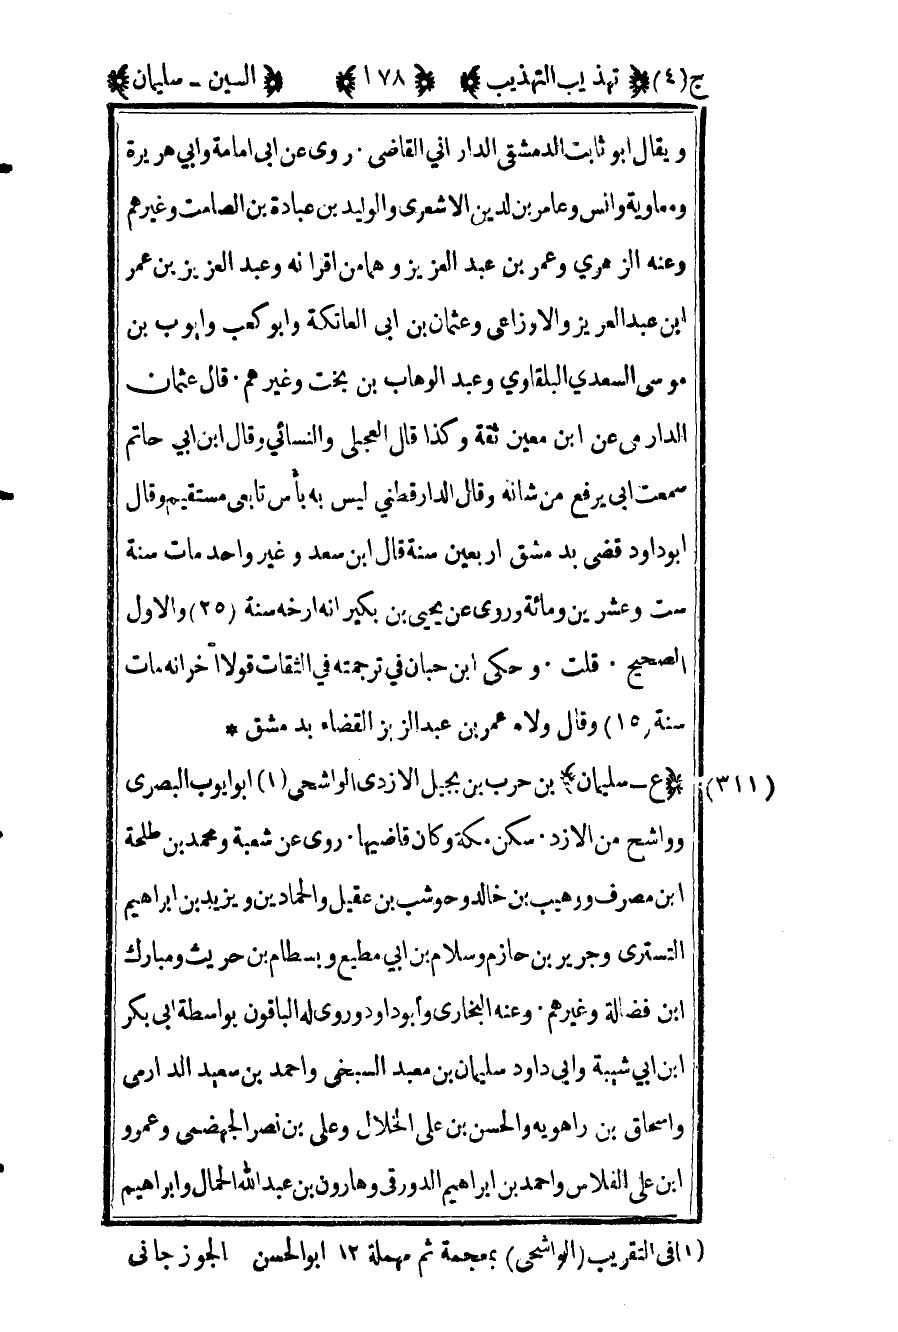 ج(٤) ﴿ تهذيب التهذيب ﴾ ﴿ ١٧٨ ﴾ ﴿ السين ـ سليمان ﴾
ويقال ابو ثابت الدمشقي الداراني القاضى ٠ روى عن ابى امامة وابي هريرة
ومعاوية وانس وعامر بن لدين الاشعرى والوليد بن عبادة بن الصامت وغيرهم
وعنه الزهري وعمر بن عبد العزيز وهما من اقرانه وعبد العزيز بن عمر
ابن عبد العزيز والاوزاعى وعثمان بن ابى العاتكة وابو كعب وايوب بن
موسى السعدي البلقاوي وعبد الوهاب بن بخت وغيرهم ٠ قال عثمان
الدارمى عن ابن معين ثقة وكذا قال العجلى والنسائي وقال ابن ابي حاتم
سمعت ابى يرفع من شانه وقال الدارقطني ليس به بأس تابعى مستقيم وقال
ابو داود قضى بدمشق اربعين سنة قال ابن سعد وغير واحد مات سنة
ست وعشرين ومائة وروى عن يحيى بن بكير انه ارخه سنة (٢٥) والاول
الصحيح ٠ قلت ٠ وحكى ابن حبان في ترجمته في الثقات قولا آخر انه مات
سنة (١٥) وقال ولاه عمر بن عبد العزيز القضاء بدمشق *
(٣١١) ﴿ع ـ سليمان﴾ بن حرب بن بجيل الازدى الواشحي (١) ابو ايوب البصرى
وواشح من الازد ٠ سكن مكة وكان قاضيها ٠ روى عن شعبة ومحمد بن طلحة
ابن مصرف ووهيب بن خالد وحوشب بن عقيل والحمادين ويزيد بن ابراهيم
التسترى وجرير بن حازم وسلام بن ابي مطيع وبسطام بن حريث ومبارك
ابن فضالة وغيرهم ٠ وعنه البخارى وأبو داود وروى له الباقون بواسطة ابى بكر
ابن ابي شيبة وابى داود سليمان بن معبد السبخى واحمد بن سعيد الدارمى
واسحاق بن راهويه والحسن بن على الخلال وعلى بن نصر الجهضمى وعمرو
ابن على الفلاس واحمد بن ابراهيم الدورقى وهارون بن عبد الله الحمال وابراهيم
(١) فى التقريب (الواشحى) بمعجمة ثم مهملة ١٢ ابو الحسن الجوزجانى